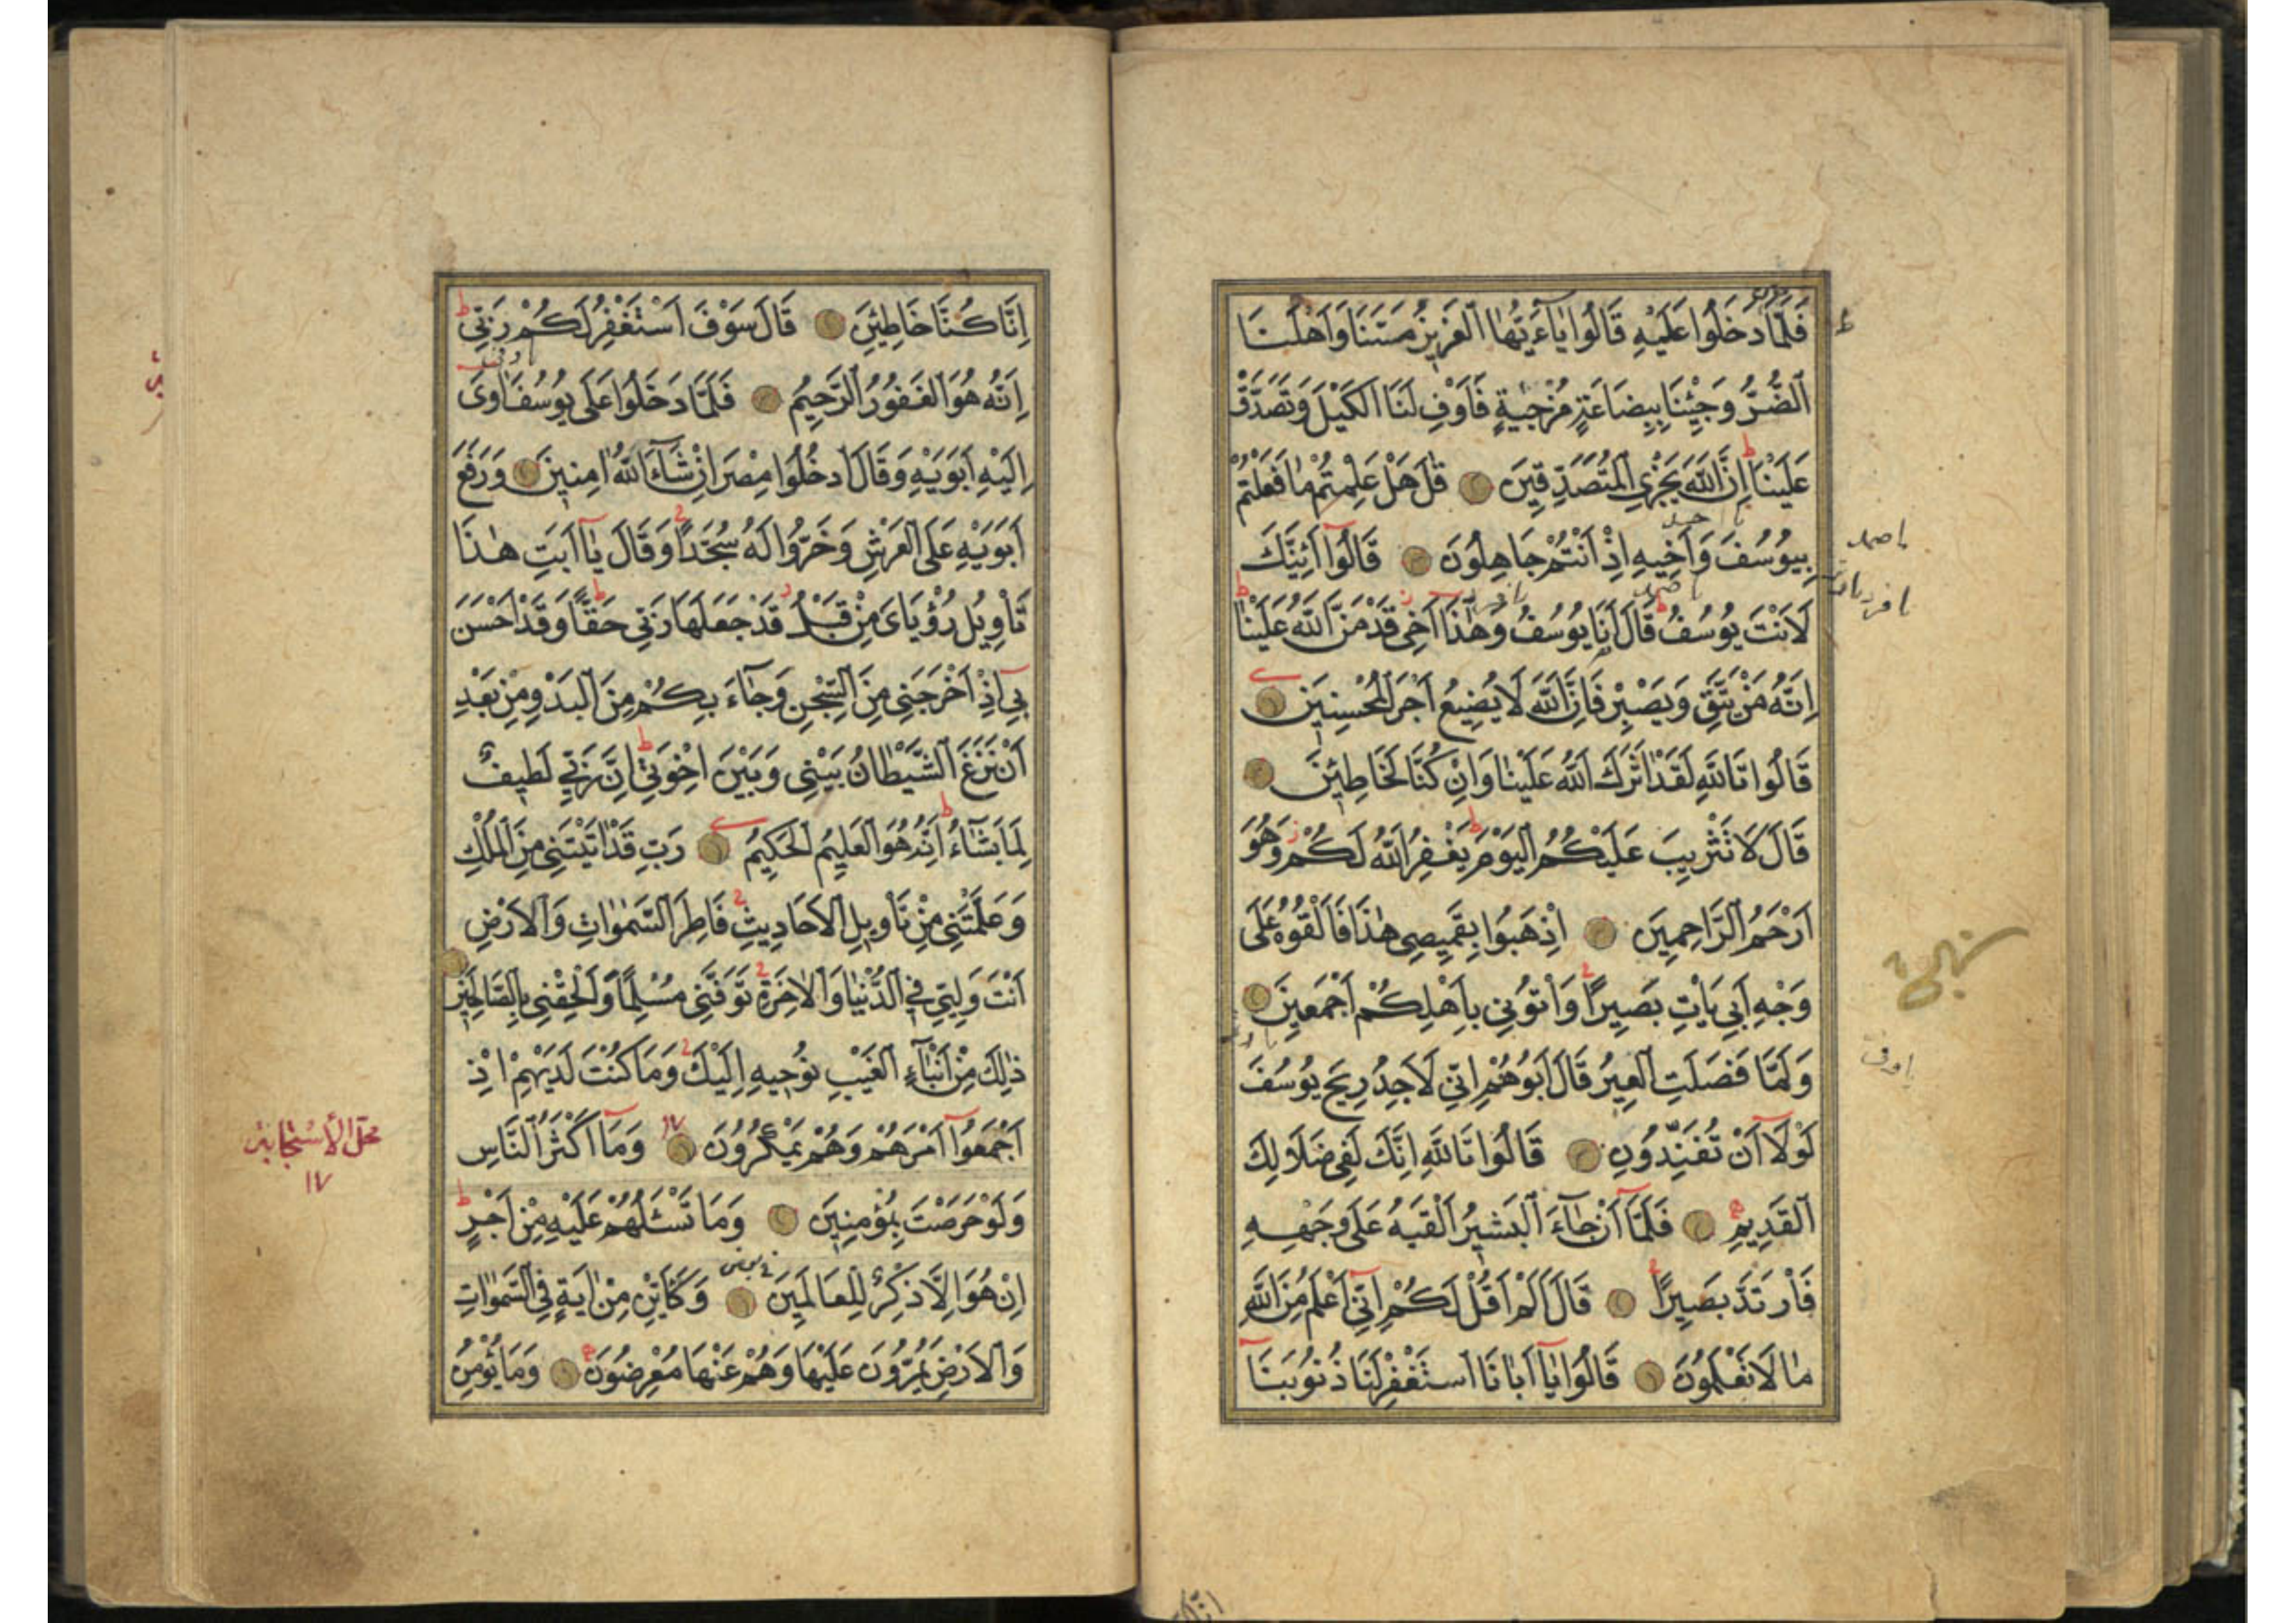 فَلَمَّا دَخَلُوا عَلَيْهِ قَالُوا يَاءَيُّهَا الْعَزِيزُ مَسَّنَا وَاَهْلَنَا
الضُّرُّ وَجِئْنَا بِبِضَاعَةٍ مُزْجٰيةٍ فَاَوْفِ لَنَا الْكَيْلَ وَتَصَدَّقْ
عَلَيْنَا اِنَّ اللّٰهَ يَجْزِي الْمُتَصَدِّقِينَ قٰلَ هَلْ عَلِمْتُمْ مَا فَعَلْتُمْ
بِيوُسُفَ وَاَخِيهِ اِذْ اَنْتُمْ جَاهِلُونَ قَالُوا اَئِنَّكَ
لَاَنْتَ يُوسُفُ قَالَ اَنَا يوُسُفُ وَهٰذَا اَخِى قَدْ مَنَّ اللّٰهُ عَلَيْنَا
اِنَّهُ مَنْ يَتَّقِ وَيَصْبِرْ فَاِنَّ اللّٰهَ لَا يُضِيعُ اَجْرَ الْمُحْسِنِينَ
قَالُوا تَاللّٰهِ لَقَدْ اٰثَرَكَ اللّٰهُ عَلَيْنَا وَاِنْ كُنَّا لَخَاطِئِنَ
قَالَ لَا تَثْرِيبَ عَلَيْكُمُ الْيَوْمَ يَغْفِرُ اللّٰهُ لَكُمْ وَهُوَ
اَرْحَمُ الرَّاحِمِينَ اِذْهَبُوا بِقَمِيصِى هٰذَا فَاَلْقُوهُ عَلَى
وَجْهِ اَبِى يَاْتِ بَصِيرًا وَاْتُونِى بِاَهْلِكُمْ اَجْمَعِينَ
وَلَمَّا فَصَلَتِ الْعِيرُ قَالَ اَبُوهُمْ اِنِّى لَاَجِدُ رِيحَ يوُسُفَ
لَوْلَا اَنْ تُفَنِّدُونِ قَالُوا تَاللّٰهِ اِنَّكَ لَفِى ضَلَالِكَ
الْقَدِيمِ فَلَمَّا اَنْ جَاءَ الْبَشِيرُ اَلْقٰيهُ عَلَى وَجْهِهِ
فَارْتَدَّ بَصِيرًا قَالَ اَلَمْ اَقُلْ لَكُمْ اِنِّى اَعْلَمُ مِنَ اللّٰهِ
مَا لَا تَعْلَمُونَ قَالُوا يَا اَبَانَا اسْتَغْفِرْ لَنَا ذُنُوبَنَا
اِنَّا كُنَّا خَاطِئِنَ قَالَ سَوْفَ اَسْتَغْفِرُ لَكُمْ رَبِّى
اِنَّهُ هُوَ الْغَفُورُ الرَّحِيمُ فَلَمَّا دَخَلُوا عَلَى يوُسُفَ اٰوٰى
اِلَيْهِ اَبَوَيْهِ وَقَالَ ادْخُلُوا مِصْرَ اِنْ شَاءَ اللّٰهُ اٰمِنِينَ وَرَفَعَ
اَبَوَيْهِ عَلَى الْعَرْشِ وَخَرُّوا لَهُ سُجَّدًا وَقَالَ يَا اَبَتِ هٰذَا
تَاْوِيلُ رُؤْيَاىَ مِنْ قَبْلُ قَدْ جَعَلَهَا رَبِّى حَقًّا وَقَدْ اَحْسَنَ
بِى اِذْ اَخْرَجَنِى مِنَ السِّجْنِ وَجَاءَ بِكُمْ مِنَ الْبَدْوِ مِنْ بَعْدِ
اَنْ نَزَغَ الشَّيْطَانُ بَيْنِى وَبَيْنَ اِخْوَتِى اِنَّ رَبِّى لَطِيفٌ
لِمَا يَشَاءُ اِنَّهُ هُوَ الْعَلِيمُ الْحَكِيمُ رَبِّ قَدْ اٰتَيْتَنِى مِنَ الْمُلْكِ
وَعَلَّمْتَنِى مِنْ تَاْوِيلِ الْاَحَادِيثِ فَاطِرَ السَّمٰوَاتِ وَالْاَرْضِ
اَنْتَ وَلِيِّى فِى الدُّنْيَا وَالْاٰخِرَةِ تَوَفَّنِى مُسْلِمًا وَاَلْحِقْنِى بِالصَّالِحِينَ
ذٰلِكَ مِنْ اَنْبَاءِ الْغَيْبِ نُوحِيهِ اِلَيْكَ وَمَا كُنْتَ لَدَيْهِمْ اِذْ
اَجْمَعُوا اَمْرَهُمْ وَهُمْ يَمْكُرُونَ وَمَا اَكْثَرُ النَّاسِ
وَلَوْ حَرَصْتَ بِمُؤْمِنِينَ وَمَا تَسْئَلُهُمْ عَلَيْهِ مِنْ اَجْرٍ
اِنْ هُوَ اِلَّا ذِكْرٌ لِلْعَالَمِينَ وَكَاَيِّنْ مِنْ اٰيَةٍ فِى السَّمٰوَاتِ
وَالْاَرْضِ يَمُرُّونَ عَلَيْهَا وَهُمْ عَنْهَا مُعْرِضُونَ وَمَا يُؤْمِنُ
محل الاستجابة
١٧